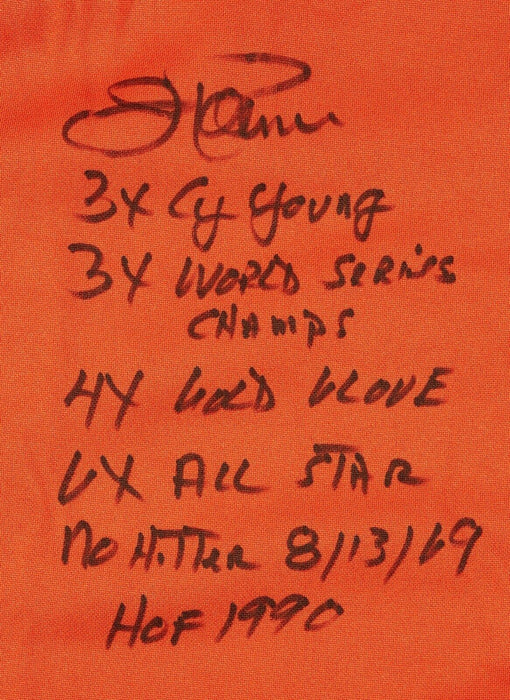 J Palmer
3X Cy Young
3X WORLD SERIES
CHAMPS
4X GOLD GLOVE
6X ALL STAR
NO HiTTer 8/13/69
HOF 1990